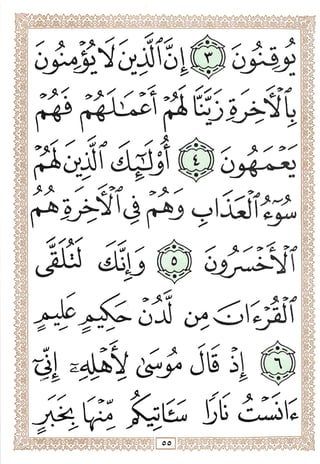 يُوقِنُونَ ٣ إِنَّ ٱلَّذِينَ لَا يُؤۡمِنُونَ
بِٱلۡأٓخِرَةِ زَيَّنَّا لَهُمۡ أَعۡمَٰلَهُمۡ فَهُمۡ
يَعۡمَهُونَ ٤ أُوْلَٰٓئِكَ ٱلَّذِينَ لَهُمۡ
سُوٓءُ ٱلۡعَذَابِ وَهُمۡ فِي ٱلۡأٓخِرَةِ هُمُ
ٱلۡأَخۡسَرُونَ ٥ وَإِنَّكَ لَتُلَقَّى
ٱلۡقُرۡءَانَ مِن لَّدُنۡ حَكِيمٍ عَلِيمٍ
٦ إِذۡ قَالَ مُوسَىٰ لِأَهۡلِهِۦٓ إِنِّيٓ
ءَانَسۡتُ نَارٗا سَـَٔاتِيكُم مِّنۡهَا بِخَبَرٍ
٥٥